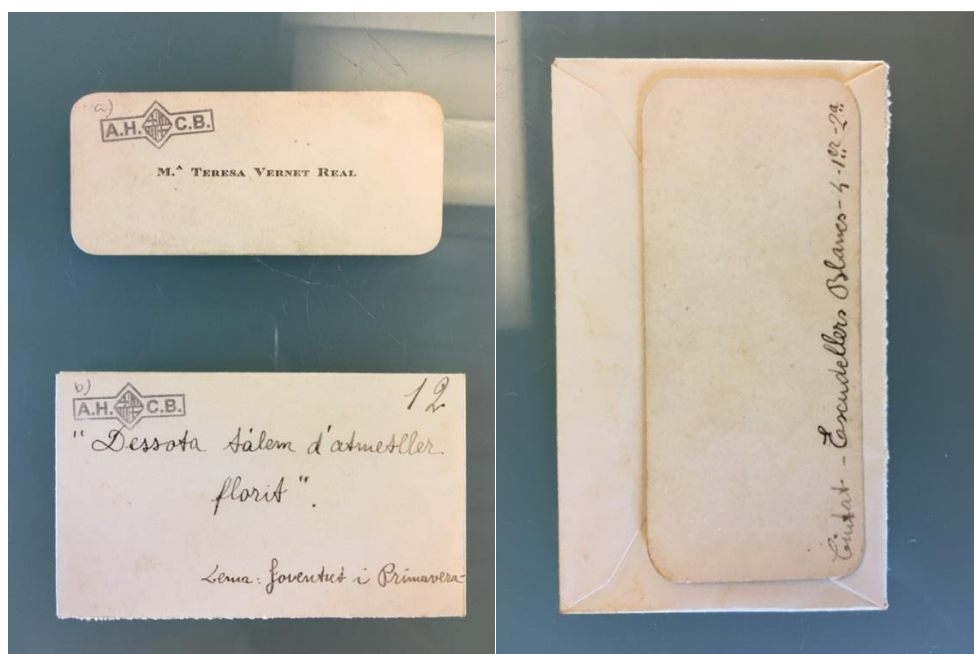 a)
A.H. C.B.
M.ª TERESA VERNET REAL
b)
A.H. C.B.
12
"Dessota tàlem d'atmetller
florit".
Lema: Joventut i Primavera-
Ciutat - Escudellers Blancs - 4 - 1er - 2ª